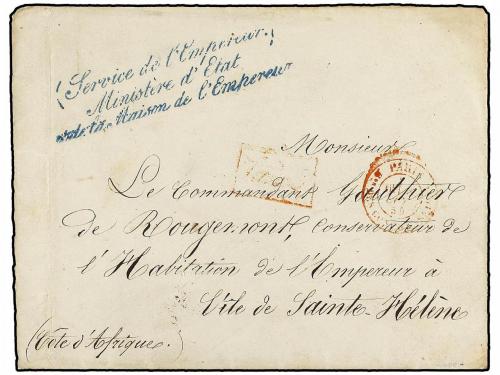 (Service de l'Empereur.)
Ministère d'Etat
et de la Maison de l'Empereur
Monsieur
PARIS
Le Commandant Gauthier
de Rougemont, Conservateur de
l'Habitation de l'Empereur à
l'île de Sainte-Hélène
(Côte d'Afrique.)